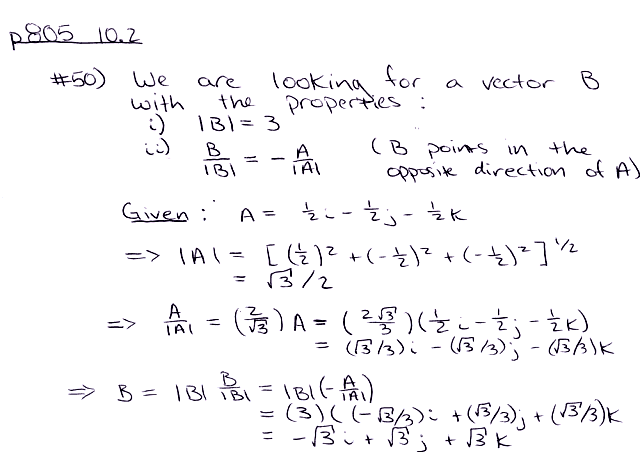 p805 10.2
#50) We are looking for a vector B
with the properties :
i) |B| = 3
ii) B/|B| = - A/|A| (B points in the
opposite direction of A)
Given : A = 1/2 i - 1/2 j - 1/2 k
=> |A| = [(1/2)² + (-1/2)² + (-1/2)²]^1/2
= √3/2
=> A/|A| = (2/√3) A = (2√3/3)(1/2 i - 1/2 j - 1/2 k)
= (√3/3)i - (√3/3)j - (√3/3)k
=> B = |B| B/|B| = |B|(-A/|A|)
= (3)((-√3/3)i + (√3/3)j + (√3/3)k
= -√3 i + √3 j + √3 k